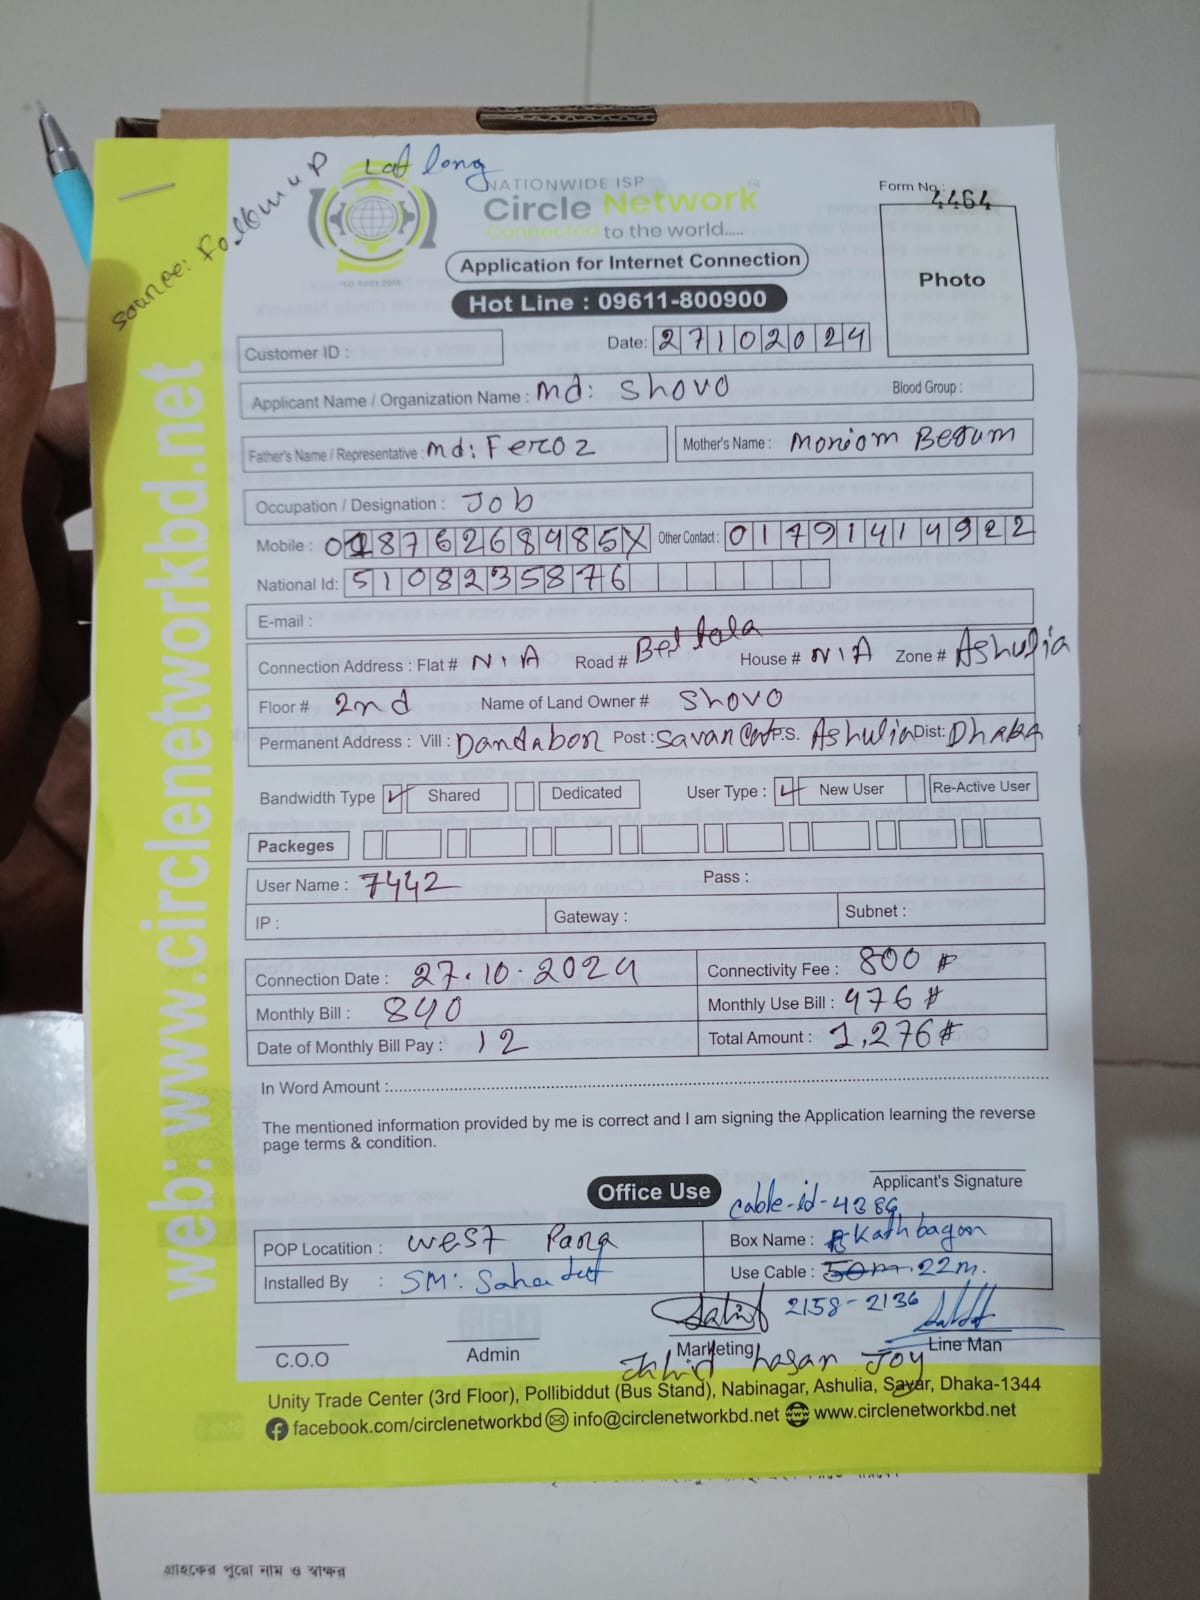 Lat long
source: Follow up
NATIONWIDE ISP
Circle Network
Connected to the world.....
Form No.: 4464
Photo
Application for Internet Connection
Hot Line : 09611-800900
web: www.circlenetworkbd.net
Customer ID :
Date: 27102024
Applicant Name / Organization Name : Md: Shovo Blood Group :
Father's Name / Representative : Md: Feroz Mother's Name : Moniom Begum
Occupation / Designation : Job
Mobile : 01876268485X Other Contact : 01791414922
National Id: 5108235876
E-mail :
Connection Address : Flat # N/A Road # Bel tala House # N/A Zone # Ashulia
Floor # 2nd Name of Land Owner # Shovo
Permanent Address : Vill : Dandabon Post : Savar Cant P.S. Ashulia Dist: Dhaka
Bandwidth Type Shared Dedicated User Type : New User Re-Active User
Packeges
User Name : 7442 Pass :
IP : Gateway : Subnet :
Connection Date : 27.10.2024 Connectivity Fee : 800 #
Monthly Bill : 840 Monthly Use Bill : 476 #
Date of Monthly Bill Pay : 12 Total Amount : 1,276 #
In Word Amount :
The mentioned information provided by me is correct and I am signing the Application learning the reverse
page terms & condition.
Applicant's Signature
Office Use
cable-id-4386
POP Locatition : West Para Box Name : Kathbagan
Installed By : SM: Use Cable : 50m. 22m.
2158-2136
C.O.O Admin Marketing Line Man
hasan Joy
Unity Trade Center (3rd Floor), Pollibiddut (Bus Stand), Nabinagar, Ashulia, Savar, Dhaka-1344
facebook.com/circlenetworkbd info@circlenetworkbd.net www.circlenetworkbd.net
গ্রাহকের পুরো নাম ও স্বাক্ষর